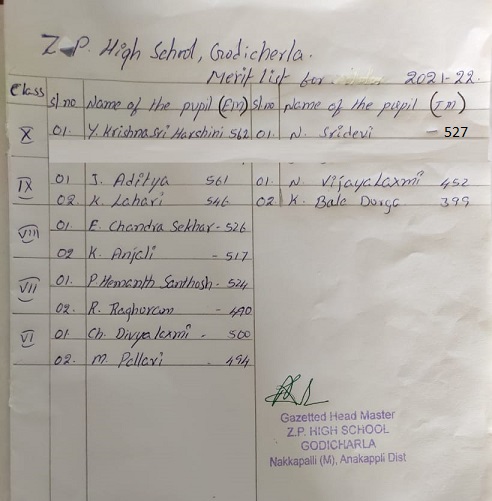 Z.P. High School, Godicherla.
Merit list for 2021-22.
Class sl no Name of the pupil (EM) sl no Name of the pupil (TM)
X 01. Y. Krishna Sri Harshini 562 01. N. Sridevi - 527
IX 01 J. Aditya 561 01. N. Vijaya Laxmi 452
02. K. Lahari 546 02. K. Bala Durga 399
VIII 01. E. Chandra Sekhar - 526
02 K. Anjali - 517
VII 01. P. Hemanth Santhosh - 524
02. R. Raghuram - 490
VI 01 Ch. Divya Laxmi - 500
02. M. Pallavi - 494
Gazetted Head Master
Z.P. HIGH SCHOOL
GODICHARLA
Nakkapalli (M), Anakappli Dist